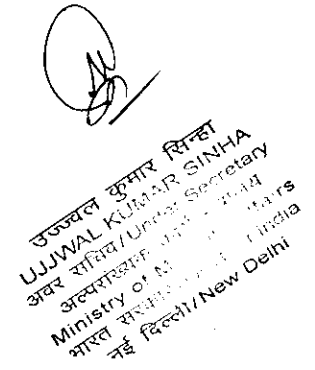 उज्जवल कुमार सिन्हा
UJJWAL KUMAR SINHA
अवर सचिव/Under Secretary
अल्पसंख्यक
Ministry of
भारत
नई दिल्ली/New Delhi